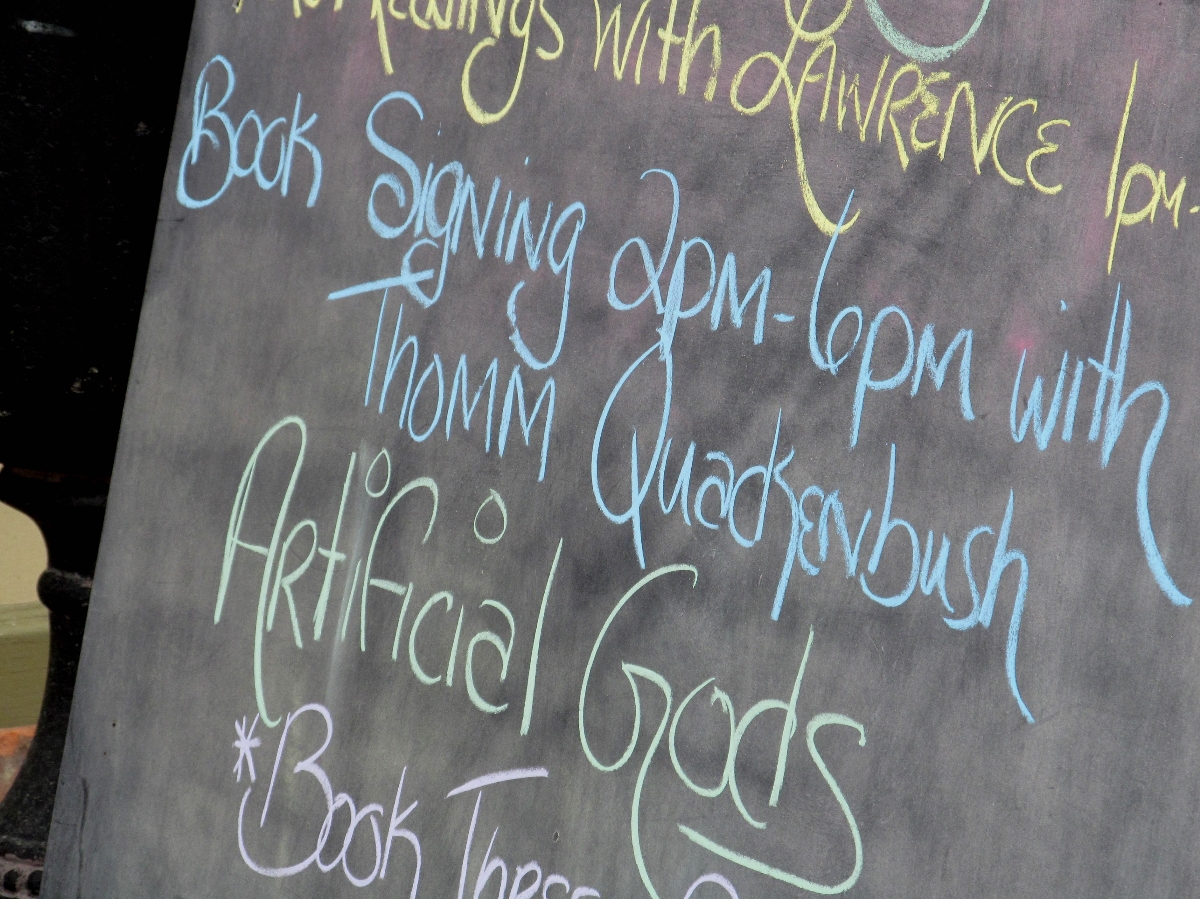 with LAWRENCE 1pm-
Book Signing 2pm-6pm with
Thomm Quackenbush
Artificial Gods
*Book These